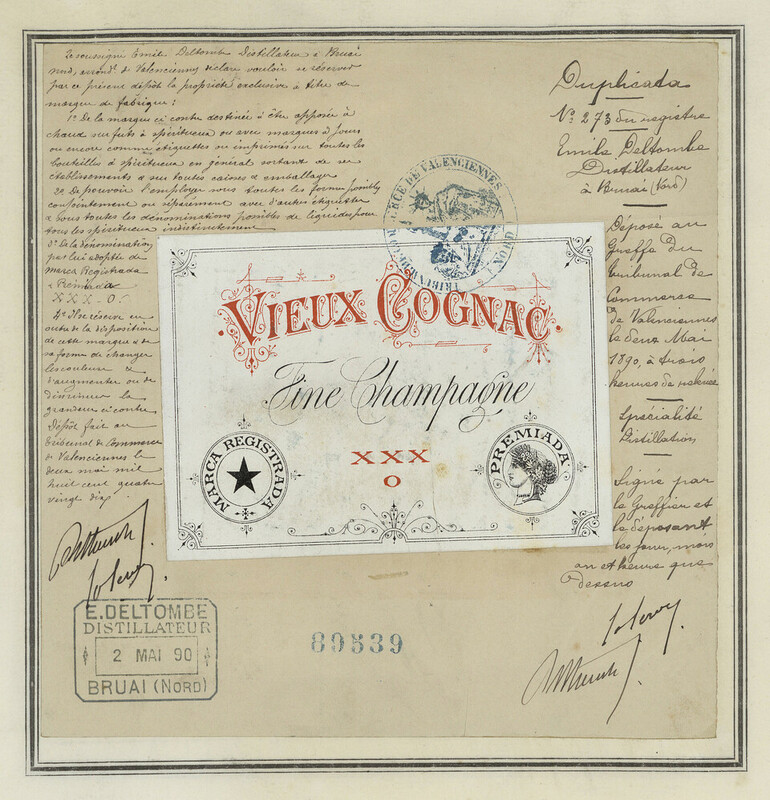 Je soussigné Emile Deltombe Distillateur à Bruai
Nord, arrondt de Valenciennes déclare vouloir se réserver
par ce présent dépôt la propriété exclusive à titre de
marque de fabrique :
1o De la marque ci contre destinée à être apposée à
chaud sur futs à spiritueux ou avec marques à jours
ou encore comme étiquettes ou imprimés sur toutes les
bouteilles à spiritueux en général sortant de ses
établissements & sur toutes caisses & emballages
2o De pouvoir l'employer sous toutes les formes possibles
conjointement ou séparément avec d'autres étiquettes
& sous toutes les dénominations possibles de liquides pour
tous les spiritueux indistinctement
3o De la dénomination
par lui adoptée de
Marca Registrada
& Premiada
XXX.O.
4o Il se réserve en
outre de la disposition
de cette marque & de
sa forme de changer
les couleurs &
d'augmenter ou de
diminuer la
grandeur ci contre
Dépôt fait au
Tribunal de Commerce
de Valenciennes le
deux mai mil
huit cent quatre
vingt dix
E. DELTOMBE
DISTILLATEUR
2 MAI 90
BRUAI (NORD)
TRIBUNAL DE COMMERCE DE VALENCIENNES
VIEUX COGNAC
Fine Champagne
XXX
O
MARCA REGISTRADA
PREMIADA
89539
Duplicada
No 273 du registre
Emile Deltombe
Distillateur
à Bruai (Nord)
Déposé au
Greffe du
tribunal de
Commerce
de Valenciennes
le deux Mai
1890, à trois
heures de relevée
Spécialité
Distillation
Signé par
le Greffier et
le déposant
les jour, mois
an et heure que
dessus